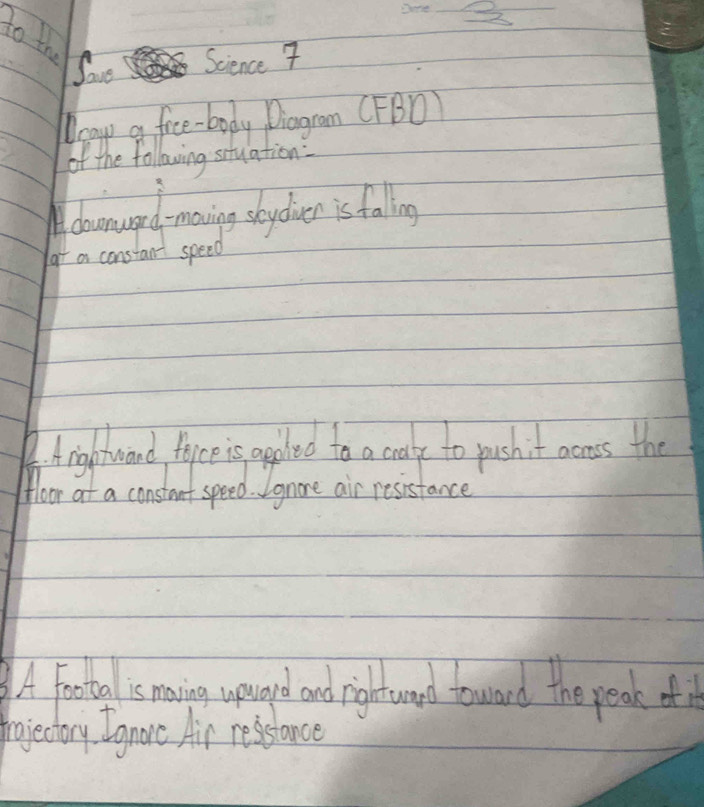 To the
Save Science 7
Draw a free-body Diagram (FBD)
of the following situation:-
A downward-moving skydiver is falling
at a constant speed
2. A rightward force is applied to a crate to push it across the
floor at a constant speed. Ignore air resistance
3 A Football is moving upward and rightward toward the peak of its
trajectory. Ignore Air resistance